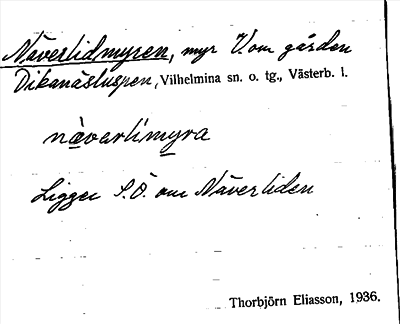 Näverlidmyren, myr V. om gården
Dikanäsluspen, Vilhelmina sn. o. tg., Västerb. l.
näverlimyra
Ligger S.Ö. om Näverliden
Thorbjörn Eliasson, 1936.